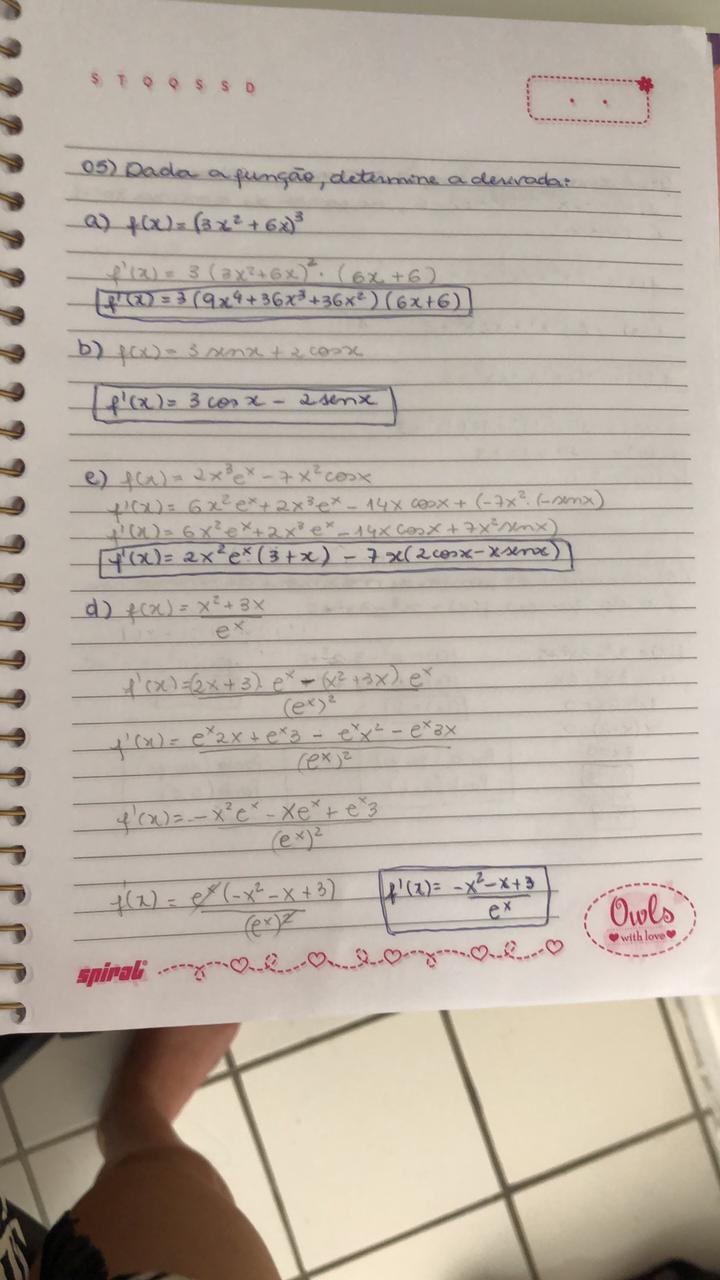 S T Q Q S S D
05) Dada a função, determine a derivada:
a) f(x) = (3x² + 6x)³
f'(x) = 3 (3x²+6x)² · (6x + 6)
f'(x) = 3 (9x⁴+36x³+36x²) (6x+6)
b) f(x) = 3 senx + 2 cosx
f'(x) = 3 cosx - 2 senx
c) f(x) = 2x³eˣ - 7x²cosx
f'(x) = 6x²eˣ + 2x³eˣ - 14x cosx + (-7x² · (-senx)
f'(x) = 6x²eˣ + 2x³eˣ - 14x cosx + 7x² senx)
f'(x) = 2x²eˣ (3+x) - 7x(2cosx - x senx)
d) f(x) = x² + 3x
eˣ
f'(x) = (2x+3) · eˣ - (x² + 3x) · eˣ
(eˣ)²
f'(x) = eˣ2x + eˣ3 - eˣx² - eˣ3x
(eˣ)²
f'(x) = -x²eˣ - xeˣ + eˣ3
(eˣ)²
f'(x) = eˣ(-x² - x + 3) f'(x) = -x² - x + 3
(eˣ)² eˣ
Owls
with love
spiral